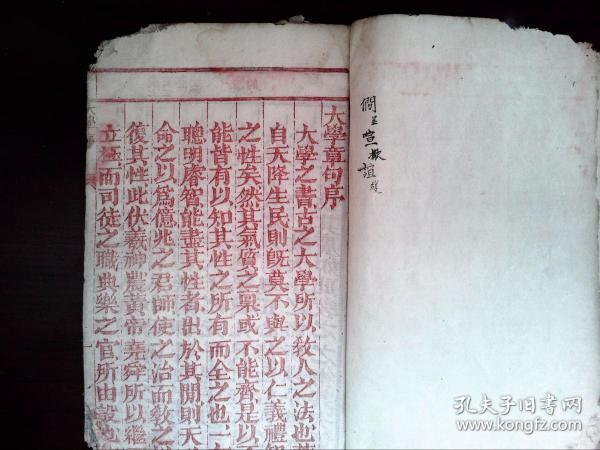 僩
諠
大學章句序
大學之書古之大學所以教人之法也
自天降生民則既莫不與之以仁義禮
之性矣然其氣質之稟或不能齊是以
能皆有以知其性之所有而全之也一
聰明睿智能盡其性者出於其間則天
命之以爲億兆之君師使之治而教之
復其性此伏羲神農黃帝堯舜所以繼
立極而司徒之職典樂之官所由設也
孔夫子旧书网
www.kongfz.com